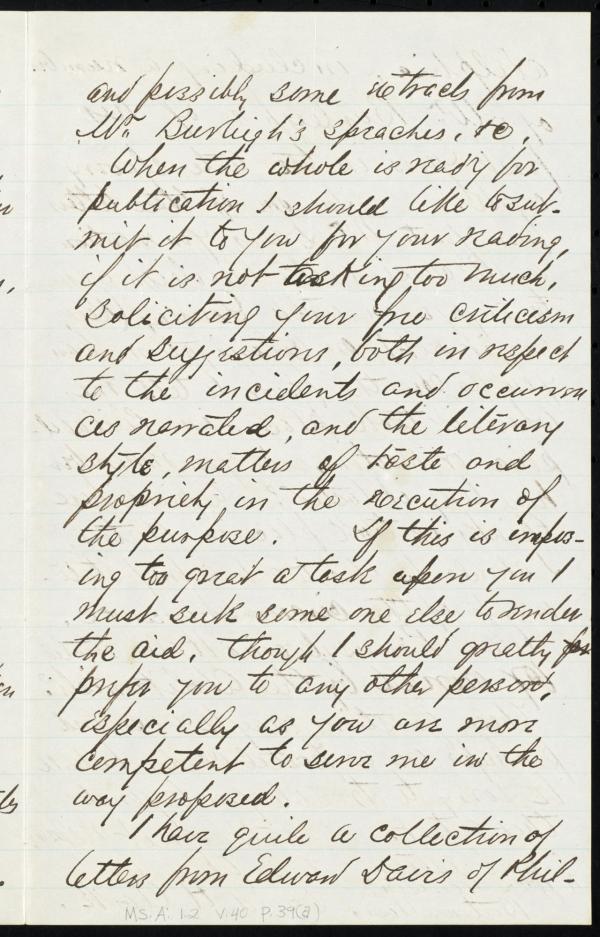 and possibly some extracts from
Mr. Burleigh's speaches, &c.
When the whole is ready for
publication I should like to sub-
mit it to you for your reading,
if it is not tasking too much,
soliciting your free criticism
and suggestions, both in respect
to the incidents and occurren
ces narrated, and the literary
style, matters of taste and
propriety in the execution of
the purpose. If this is impos-
ing too great a task upon you I
must seek some one else to render
the aid. Though I should greatly
prefer you to any other person,
especially as you are more
competent to serve me in the
way proposed.
I have quite a collection of
letters from Edward Davis of Phil-
MS. A. 1.2 V.40 P.39(a)